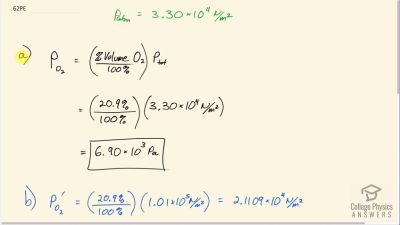 62PE
Patm = 3.30 × 10⁴ N/m²
a) P_O₂ = (% Volume O₂ / 100%) P_tot
= (20.9% / 100%) (3.30 × 10⁴ N/m²)
= 6.90 × 10³ Pa
b) P_O₂' = (20.9% / 100%) (1.01 × 10⁵ N/m²) = 2.1109 × 10⁴ N/m²
College Physics
ANSWERS